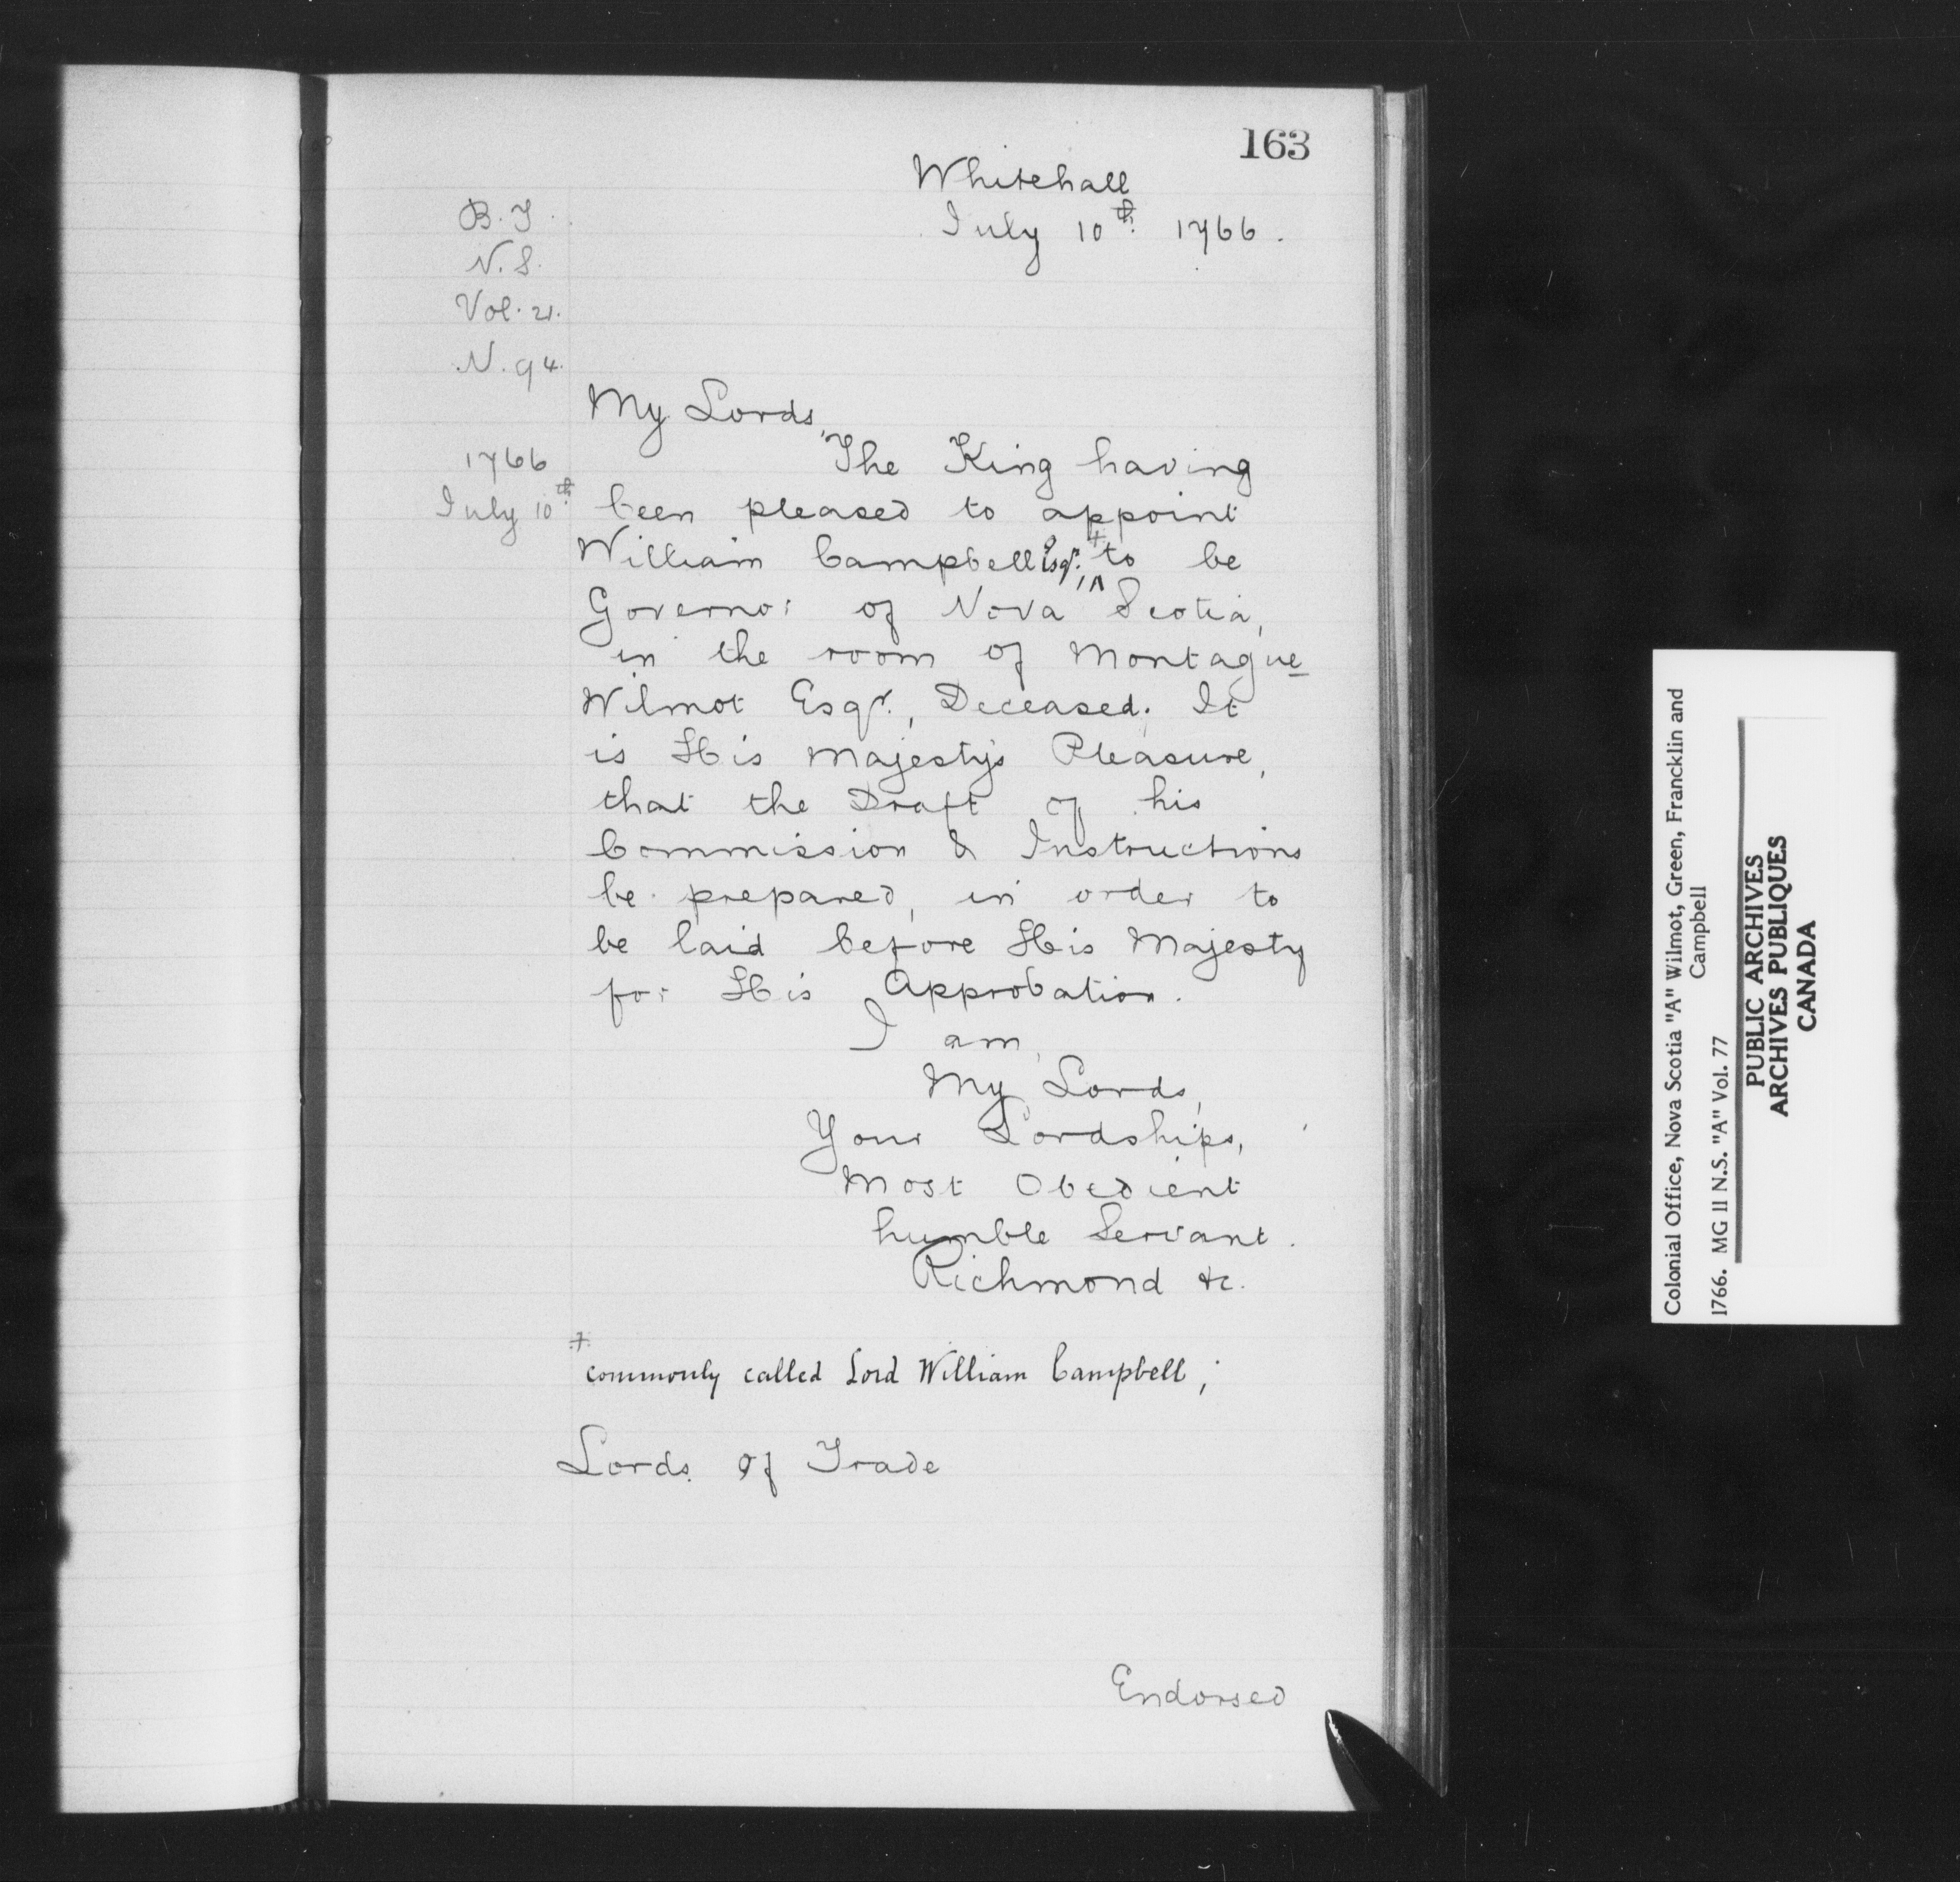 163
Whitehall
July 10th. 1766.
B. T.
N. S.
Vol. 21.
N. 94.
My Lords,
1766
July 10th.
The King having
been pleased to appoint
William Campbell Esqr., + to be
Governor of Nova Scotia,
in the room of Montague
Wilmot Esqr., Deceased. It
is His Majesty's Pleasure,
that the Draft of his
Commission & Instructions
be prepared, in order to
be laid before His Majesty
for His Approbation.
I am,
My Lords,
Your Lordships,
Most Obedient
humble Servant.
Richmond &c.
+
commonly called Lord William Campbell;
Lords of Trade
Endorsed
Colonial Office, Nova Scotia "A" Wilmot, Green, Francklin and
Campbell
1766. MG 11 N.S. "A" Vol. 77
PUBLIC ARCHIVES
ARCHIVES PUBLIQUES
CANADA